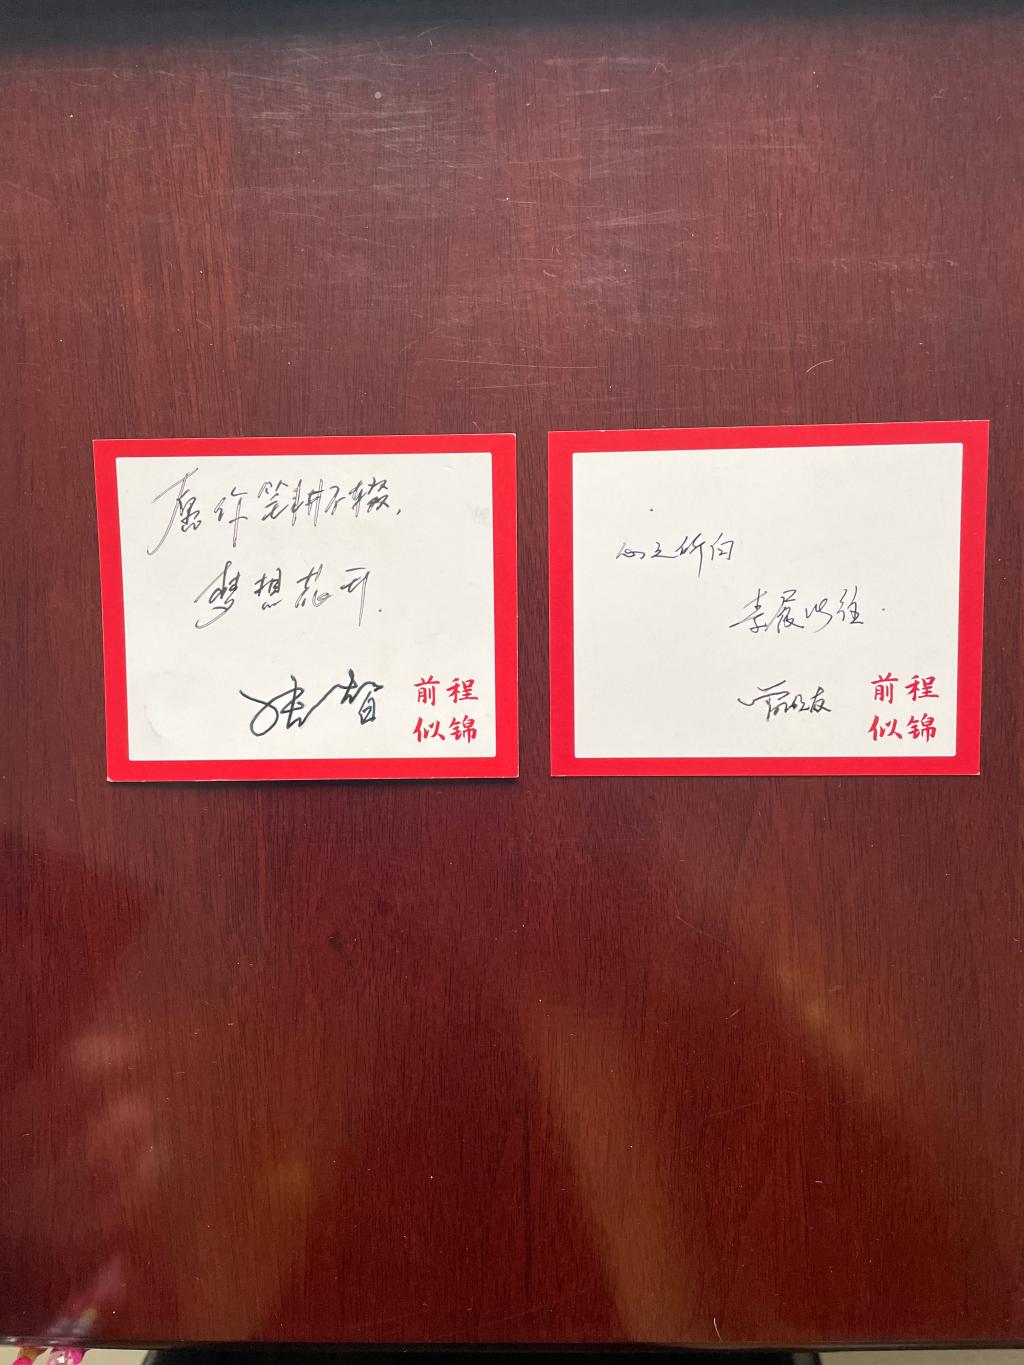 愿你笔耕不辍，
梦想花开.
张智
前程
似锦
心之所向
素履以往.
前程
似锦